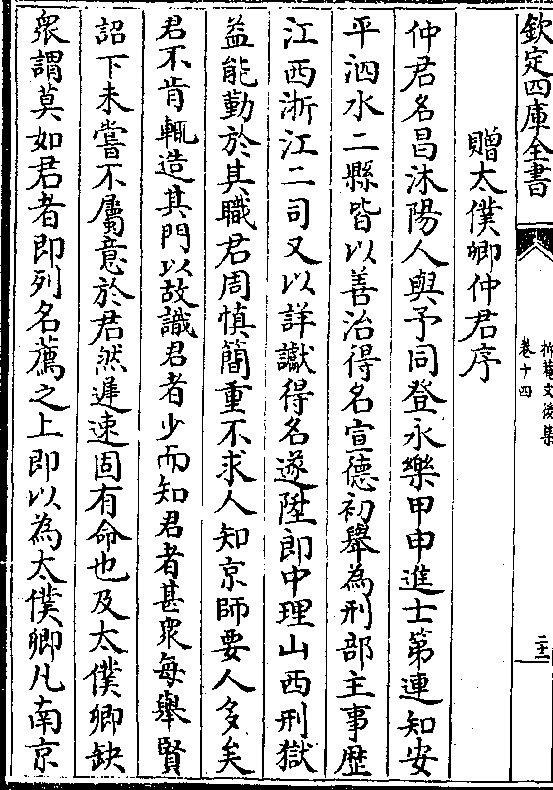 欽定四庫全書
抑菴文後集
卷十四
二十一
贈太僕卿仲君序
仲君名昌沐陽人與予同登永樂甲申進士第連知安
平泗水二縣皆以善治得名宣德初舉為刑部主事歴
江西浙江二司又以詳讞得名遂陞郎中理山西刑獄
益能勤於其職君周慎簡重不求人知京師要人多矣
君不肯輒造其門以故識君者少而知君者甚衆每舉賢
詔下未嘗不屬意於君然遲速固有命也及太僕卿缺
衆謂莫如君者即列名薦之上即以為太僕卿凡南京